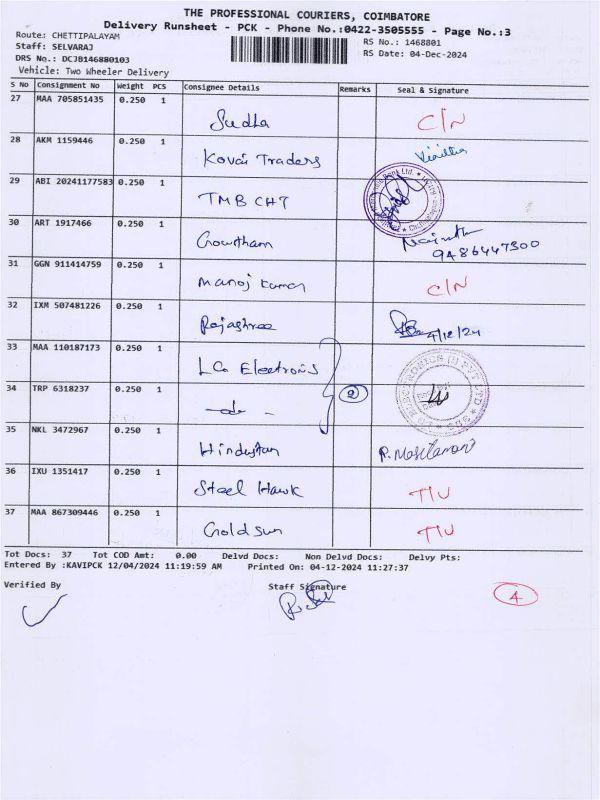 THE PROFESSIONAL COURIERS, COIMBATORE
Delivery Runsheet - PCK - Phone No.:0422-3505555 - Page No.:3
Route: CHETTIPALAYAM
Staff: SELVARAJ
DRS No.: DCJB146880103
Vehicle: Two Wheeler Delivery
RS No.: 1468801
RS Date: 04-Dec-2024
S No Consignment No Weight PCS Consignee Details Remarks Seal & Signature
27 MAA 705851435 0.250 1 Sudha C/N
28 AKM 1159446 0.250 1 Kovai Traders
29 ABI 20241177583 0.250 1 TMB CHT
30 ART 1917466 0.250 1 Gowtham 9486447300
31 GGN 911414759 0.250 1 Manoj Kumar C/N
32 IXM 507481226 0.250 1 Rajashree 4/12/24
33 MAA 110187173 0.250 1 LCo Electronis
34 TRP 6318237 0.250 1 -do- 2
35 NKL 3472967 0.250 1 Hindustan
36 IXU 1351417 0.250 1 Steel Hawk TIU
37 MAA 867309446 0.250 1 Goldsun TIU
Tot Docs: 37 Tot COD Amt: 0.00 Delvd Docs: Non Delvd Docs: Delvy Pts:
Entered By :KAVIPCK 12/04/2024 11:19:59 AM Printed On: 04-12-2024 11:27:37
Verified By Staff Signature
4